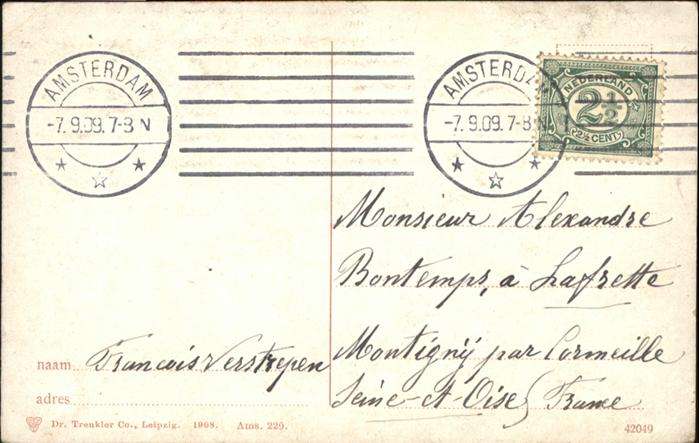 AMSTERDAM
-7.9.09.7-8 N
AMSTERDA
-7.9.09.7-8
NEDERLAND
2½
2½ CENT
Monsieur Alexandre
Bontemps, à Lafrette
Montigny par Cormeille
Seine-et-Oise) France
naam Francois Verstrepen
adres
Dr. Trenkler Co., Leipzig. 1908. Ams. 229.
42049